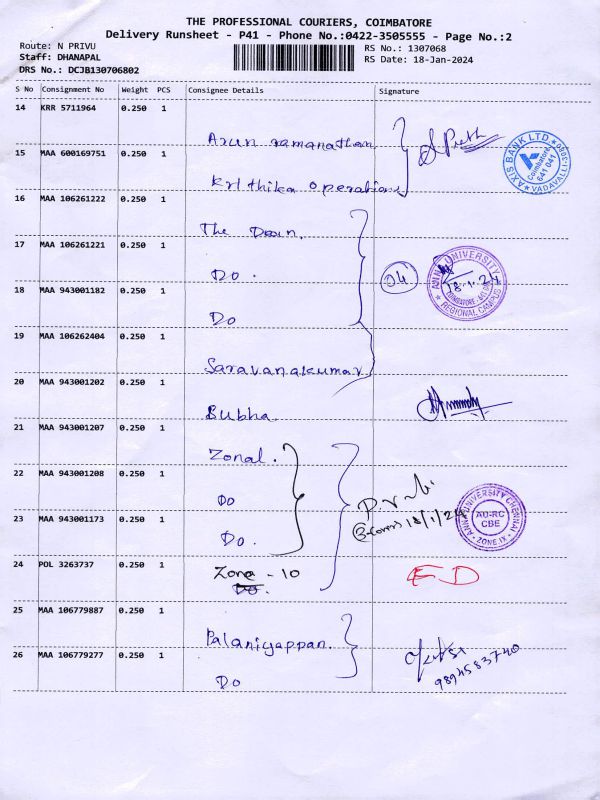 THE PROFESSIONAL COURIERS, COIMBATORE
Delivery Runsheet - P41 - Phone No.:0422-3505555 - Page No.:2
Route: N PRIVU
Staff: DHANAPAL
DRS No.: DCJB130706802
RS No.: 1307068
RS Date: 18-Jan-2024
S No Consignment No Weight PCS Consignee Details Signature
14 KRR 5711964 0.250 1 Arun ramanathan
15 MAA 600169751 0.250 1 Krithika operations
AXIS BANK LTD. Coimbatore 641 041 VADAVALLI
16 MAA 106261222 0.250 1 The Dean,
17 MAA 106261221 0.250 1 DO.
18 MAA 943001182 0.250 1 DO
04
ANNA UNIVERSITY REGIONAL CAMPUS
18.1.24
19 MAA 106262404 0.250 1 Saravanakumar
20 MAA 943001202 0.250 1 Subha.
21 MAA 943001207 0.250 1 Zonal.
22 MAA 943001208 0.250 1 DO
23 MAA 943001173 0.250 1 DO.
18/1/24
ANNA UNIVERSITY CHENNAI AU-RC CBE ZONE IX
24 POL 3263737 0.250 1 Zone - 10
ED
25 MAA 106779887 0.250 1 Palaniyappan.
26 MAA 106779277 0.250 1 DO
9894583740